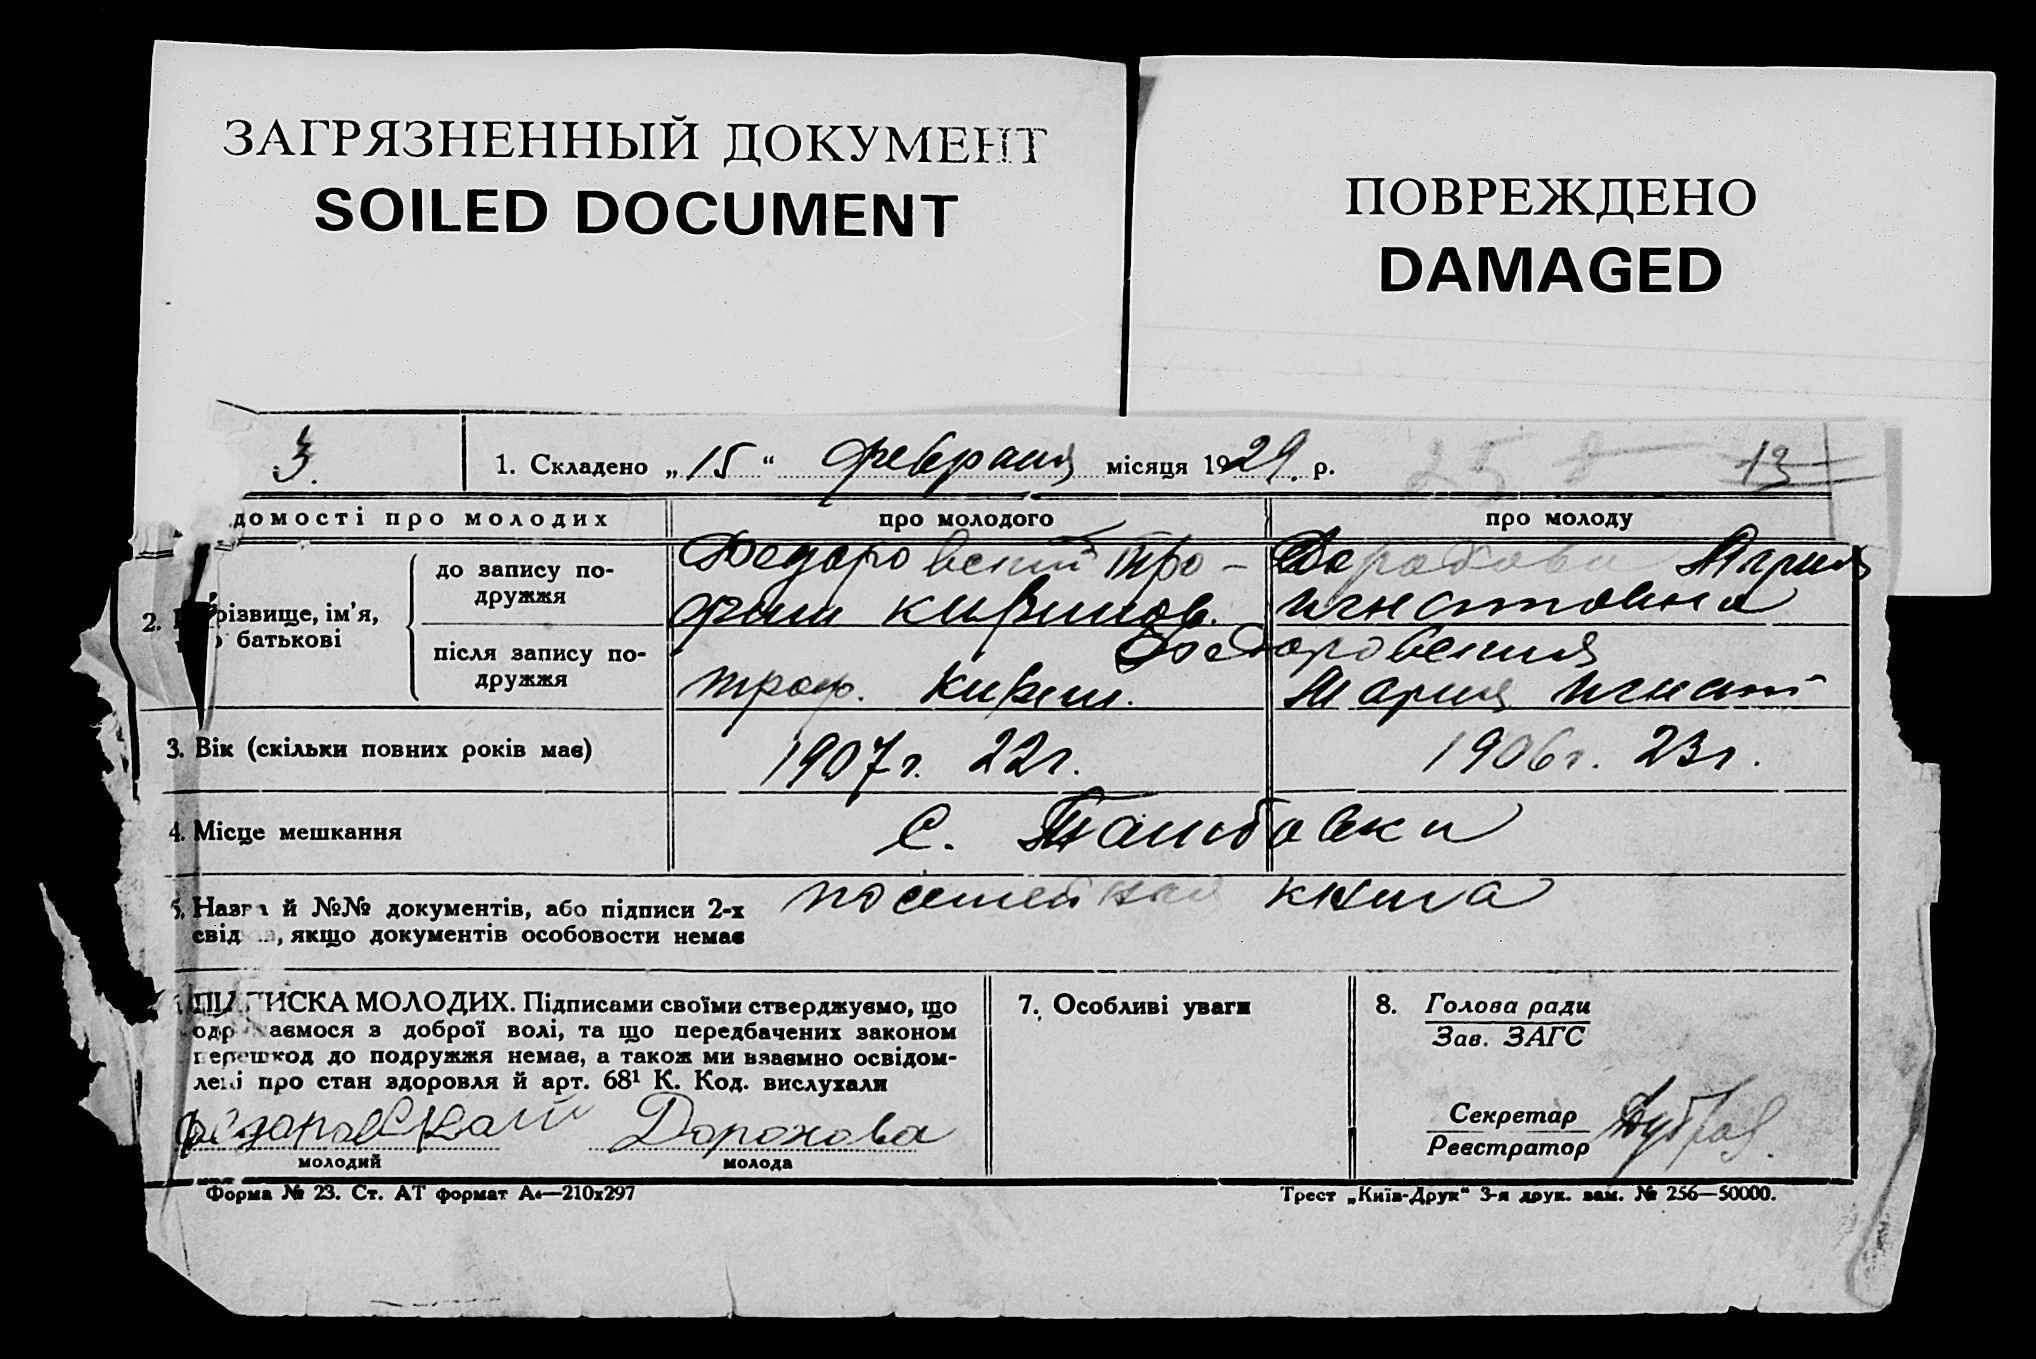 ЗАГРЯЗНЕННЫЙ ДОКУМЕНТ
SOILED DOCUMENT
ПОВРЕЖДЕНО
DAMAGED
3.
1. Складено „15“ февраля місяця 1929 р.
13
домості про молодих
про молодого
про молоду
2. різвище, ім’я, батькові
до запису по-
дружжя
Федоровский Тро-
фим
Мария
Игнатовна
після запису по-
дружжя
Троф.
Федоровская
Мария Игнат
3. Вік (скільки повних років має)
1907 г. 22 г.
1906 г. 23 г.
4. Місце мешкання
С. Тамбовка
5. Назва й №№ документів, або підписи 2-х
свід , якщо документів особовости немає
посемейная книга
ПІДПИСКА МОЛОДИХ. Підписами своїми стверджуємо, що
одружаємося з доброї волі, та що передбачених законом
перешкод до подружжя немає, а також ми взаємно освідом-
лені про стан здоровля й арт. 68¹ К. Код. вислухали
Дорохова
молодий
молода
7. Особливі уваги
8. Голова ради
Зав. ЗАГС
Секретар
Реєстратор
Форма № 23. Ст. АТ формат А₄—210х297
Трест „Київ-Друк“ 3-я друк. зам. № 256—50000.